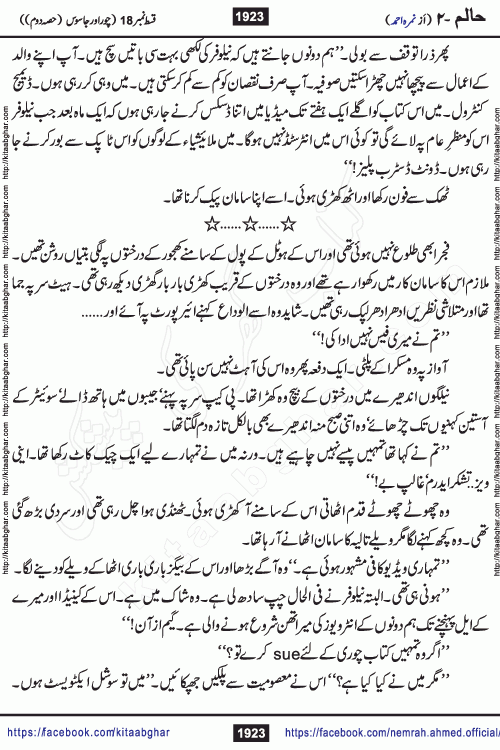 حالم ۔۲ (از نمرہ احمد)
1923
قسط نمبر 18 (چور اور جاسوس (حصہ دوم))
پھر ذرا توقف سے بولی۔ ''ہم دونوں جانتے ہیں کہ نیلوفر کی لکھی بہت سی باتیں سچ ہیں۔ آپ اپنے والد
کے اعمال سے پیچھا نہیں چھڑا سکتیں صوفیہ۔ آپ صرف نقصان کو کم سے کم کر سکتی ہیں۔ میں وہی کر رہی ہوں۔ ڈیمیج
کنٹرول۔ میں اس کتاب کو اگلے ایک ہفتے تک میڈیا میں اتنا ڈسکس کرنے جا رہی ہوں کہ ایک ماہ بعد جب نیلوفر
اس کو منظر عام پہ لائے گی تو کوئی اس میں انٹرسٹڈ نہیں ہوگا۔ میں ملائیشیاء کے لوگوں کو اس ٹاپک سے بور کرنے جا
رہی ہوں۔ ڈونٹ ڈسٹرب پلیز!''
ٹھک سے فون رکھا اور اٹھ کھڑی ہوئی۔ اسے اپنا سامان پیک کرنا تھا۔
☆......☆......☆
فجر ابھی طلوع نہیں ہوئی تھی اور اس کے ہوٹل کے پول کے سامنے کھجور کے درختوں پہ لگی بتیاں روشن تھیں۔
ملازم اس کا سامان کار میں رکھوا رہے تھے اور وہ درختوں کے قریب کھڑی بار بار گھڑی دیکھ رہی تھی۔ ہیٹ سر پہ جما
تھا اور متلاشی نظریں ادھر ادھر لپک رہی تھیں۔ شاید وہ اسے الوداع کہنے ائیرپورٹ پہ آئے اور......
''تم نے میری فیس نہیں ادا کی!''
آواز پہ وہ مسکرا کے پلٹی۔ ایک دفعہ پھر وہ اس کی آہٹ نہیں سن پائی تھی۔
نیلگوں اندھیرے میں درختوں کے بیچ وہ کھڑا تھا۔ پی کیپ سر پہ پہنے' جیبوں میں ہاتھ ڈالے' سوئیٹر کے
آستین کہنیوں تک چڑھائے' وہ اتنی صبح منہ اندھیرے بھی بالکل تازہ دم لگتا تھا۔
''تم نے کہا تھا تمہیں پیسے نہیں چاہیے ہیں۔ ورنہ میں نے تمہارے لیے ایک چیک کاٹ رکھا تھا۔ اینی
ویز.. تشکر ایدرم غالپ بے!''
وہ چھوٹے چھوٹے قدم اٹھاتی اس کے سامنے آ کھڑی ہوئی۔ ٹھنڈی ہوا چل رہی تھی اور سردی بڑھ گئی
تھی۔ وہ کچھ کہنے لگا مگر ویلے تالیہ کا سامان اٹھانے آ رہا تھا۔
''تمہاری ویڈیو کافی مشہور ہوئی ہے۔'' وہ آگے بڑھا اور اس کے بیگز باری باری اٹھا کے ویلے کو دینے لگا۔
''ہونی ہی تھی۔ البتہ نیلوفر نے فی الحال چپ سادھ لی ہے۔ وہ شاک میں ہے۔ اس کے کینیڈا اور میرے
کے ایل پہنچنے تک ہم دونوں کے انٹرویوز کی میراتھن شروع ہونے والی ہے۔ گیم از آن!''
''اگر وہ تمہیں کتاب چوری کے لئے sue کرے تو؟''
''مگر میں نے کیا کیا ہے؟'' اس نے معصومیت سے پلکیں جھپکائیں۔ ''میں تو سوشل ایکٹویسٹ ہوں۔
https://facebook.com/kitaabghar
1923
https://facebook.com/nemrah.ahmed.official/
http://kitaabghar.com